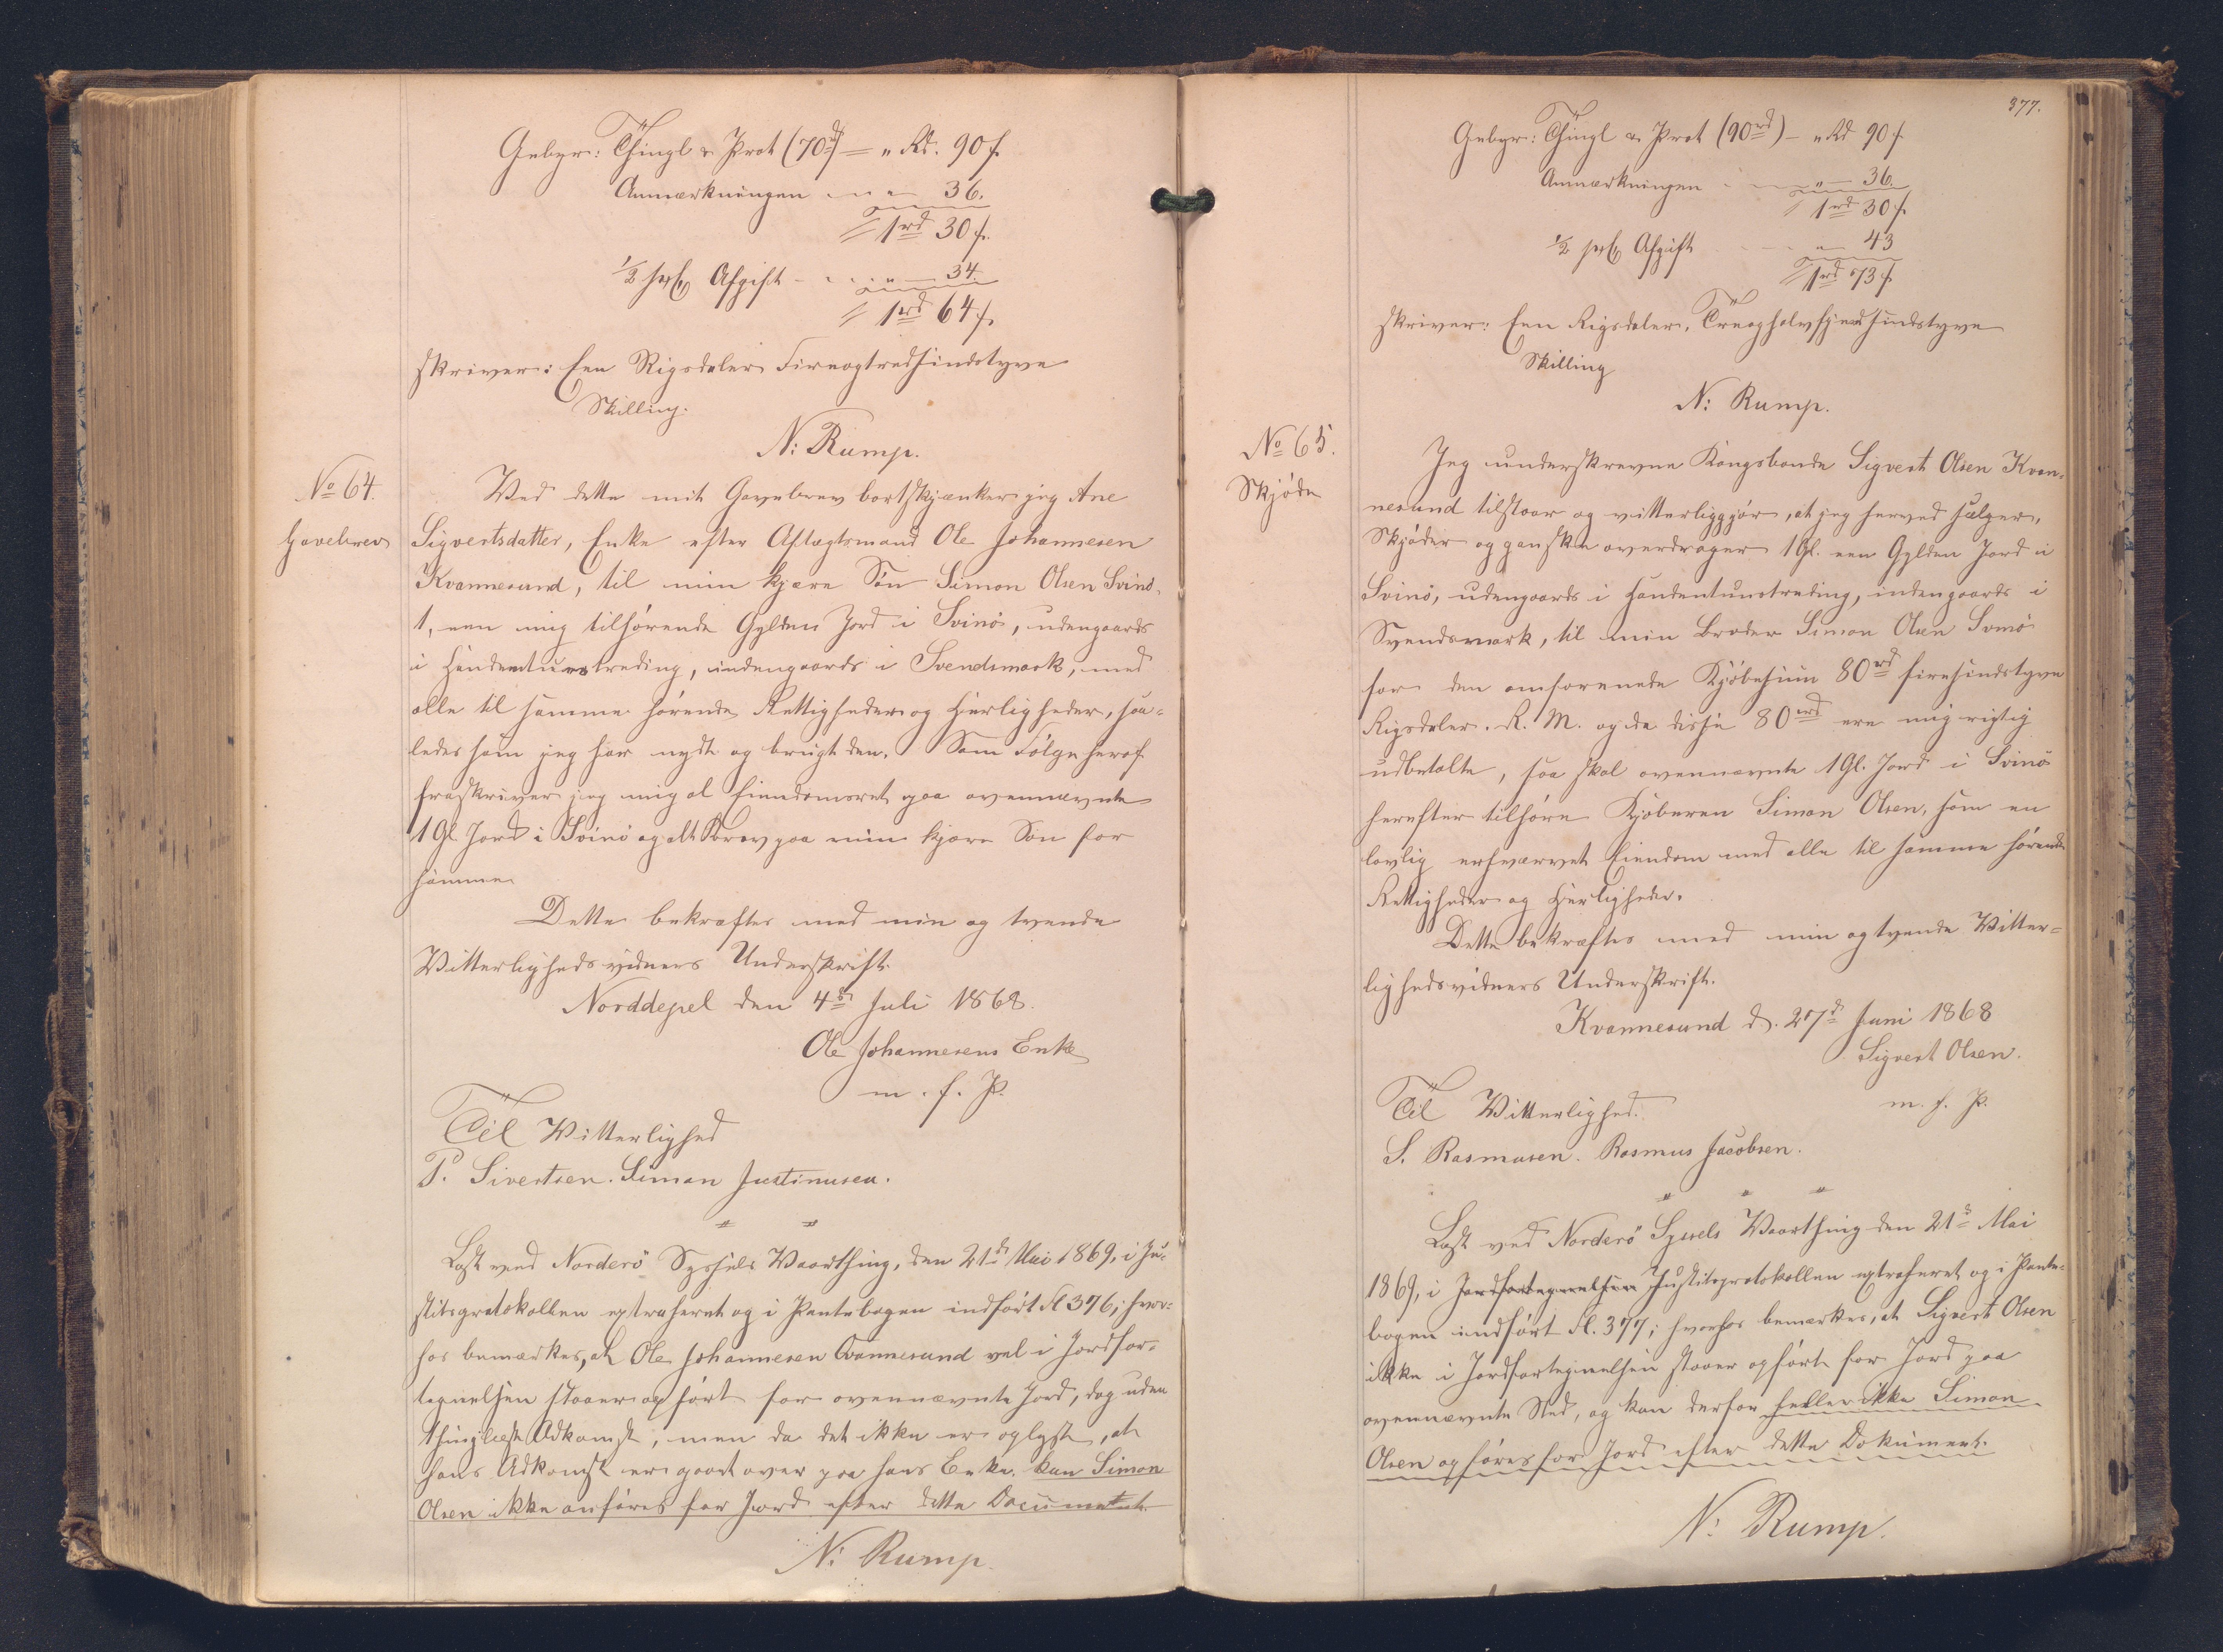 Gebyr: Thingl & Prot (70rd) — " Rd. 90 f.
Anmærkningen " — 36.
1rd 30 f.
1/2 prC Afgift - - " — 34.
1rd 64 f.
skriver: Een Rigsdaler Fireogtredsindstyve
Skilling.
N: Rump.
No 64.
Gavebrev
Ved dette mit Gavebrev bortskjænker jeg Ane
Sigvertsdatter, Enke efter Aftægtsmand Ole Johannesen
Kvannesund, til min kjære Søn Simon Olsen Svinø,
1, een mig tilhørende Gylden Jord i Svinø, udengaards
i Handentunstreding, indengaards i Svendsmark, med
alle til samme hørende Rettigheder og Herligheder, saa-
ledes som jeg har nydt og brugt den. Som Følge heraf
fraskriver jeg mig al Eiendomsret paa ovennævnte
1 Gl. Jord i Svinø og alt Krav paa min kjære Søn for
samme
Dette bekræftes med min og tvende
Vitterlighedsvidners Underskrift.
Norddepel den 4de Juli 1868.
Ole Johannesens Enke
m. f. P.
Til Vitterlighed
P. Sivertsen. Simon Justinusen.
Læst ved Norderø Syssels Vaarthing, den 21de Mai 1869, i Ju-
stitsprotokollen extraheret og i Pantebogen indført Fl 376; hvor-
hos bemærkes, at Ole Johannesen Qvannesund vel i Jordfor-
tegnelsen staaer opført for ovennævnte Jord, dog uden
thinglæst Adkomst, men da det ikke er oplyst, at
hans Adkomst er gaaet over paa hans Enke, kan Simon
Olsen ikke anføres for Jord efter dette Document.
N: Rump.
377.
Gebyr: Thingl & Prot (90rd) — " Rd 90 f
Anmærkningen - " — 36.
1rd 30 f.
1/2 prC Afgift - - " — 43
1rd 73 f.
skriver: Een Rigsdaler, Treoghalvfjerdsindstyve
Skilling
N: Rump.
No 65.
Skjøde
Jeg underskrevne Kongsbonde Sigvert Olsen Kvan-
nesund tilstaar og vitterliggjør, at jeg herved sælger,
Skjøder og ganske overdrager 1 Gl. een Gylden Jord i
Svinø, udengaards i Handentunstreding, indengaards i
Svendsmark, til min Broder Simon Olsen Svinø
for den omforenede Kjøbesum 80rd firesindstyve
Rigsdaler. R. M. og da disse 80rd ere mig rigtig
udbetalte, saa skal ovennævnte 1 Gl. Jord i Svinø
herefter tilhøre Kjøberen Simon Olsen, som en
lovlig erhvervet Eiendom med alle til samme hørende
Rettigheder og Herligheder.
Dette bekræftes med min og tvende Vitter-
lighedsvidners Underskrift.
Kvannesund d. 27de Juni 1868
Sigvert Olsen.
m. f. P.
Til Vitterlighed.
S. Rasmusen. Rasmus Jacobsen.
Læst ved Norderø Syssels Vaarthing den 21de Mai
1869, i Jordfortegnelsen Justitsprotokollen extraheret og i Pante-
bogen indført Fl. 377; hvorhos bemærkes, at Sigvert Olsen
ikke i Jordfortegnelsen staaer opført for Jord paa
ovennævnte Sted, og kan derfor heller ikke Simon
Olsen opføres for Jord efter dette Dokument.
N: Rump.